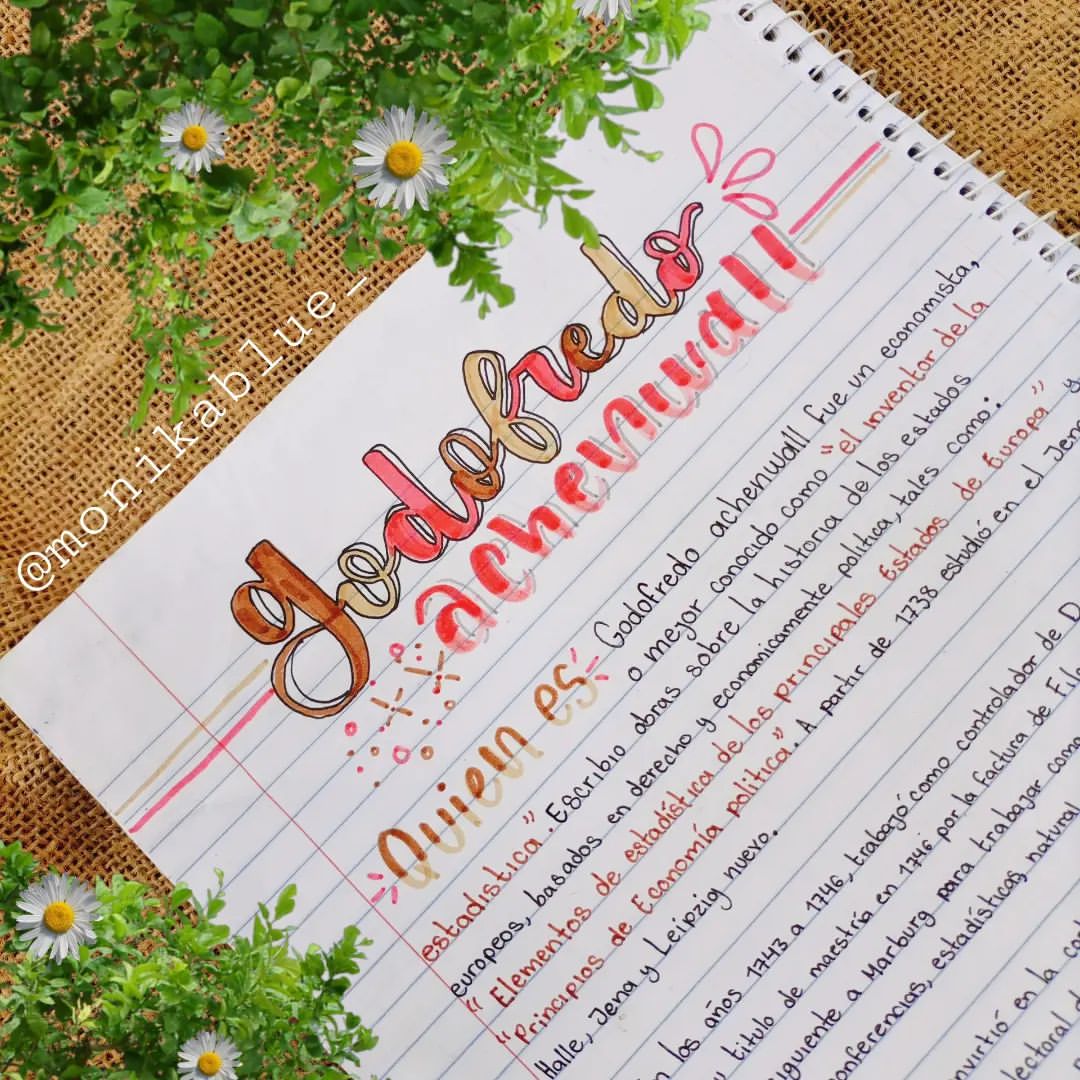 @monikablue_
godofredo
achenwall
Quien es Godofredo achenwall fue un economista,
o mejor conocido como "el inventor de la
estadistica". Escribio obras sobre la historia de los estados
europeos, basados en derecho y economicamente politica, tales como:
"Elementos de estadística de los principales Estados de Europa" y
"Principios de Economía politica". A partir de 1738 estudió en el Jena
Halle, Jena y Leipzig nuevo.
n los años 1743 a 1746, trabajó como controlador de D
titulo de maestría en 1746 por la factura de Filo
iguiente a Marburg para trabajar como
onferencias, estadísticas, natural
nvirtió en la cat
lectoral d